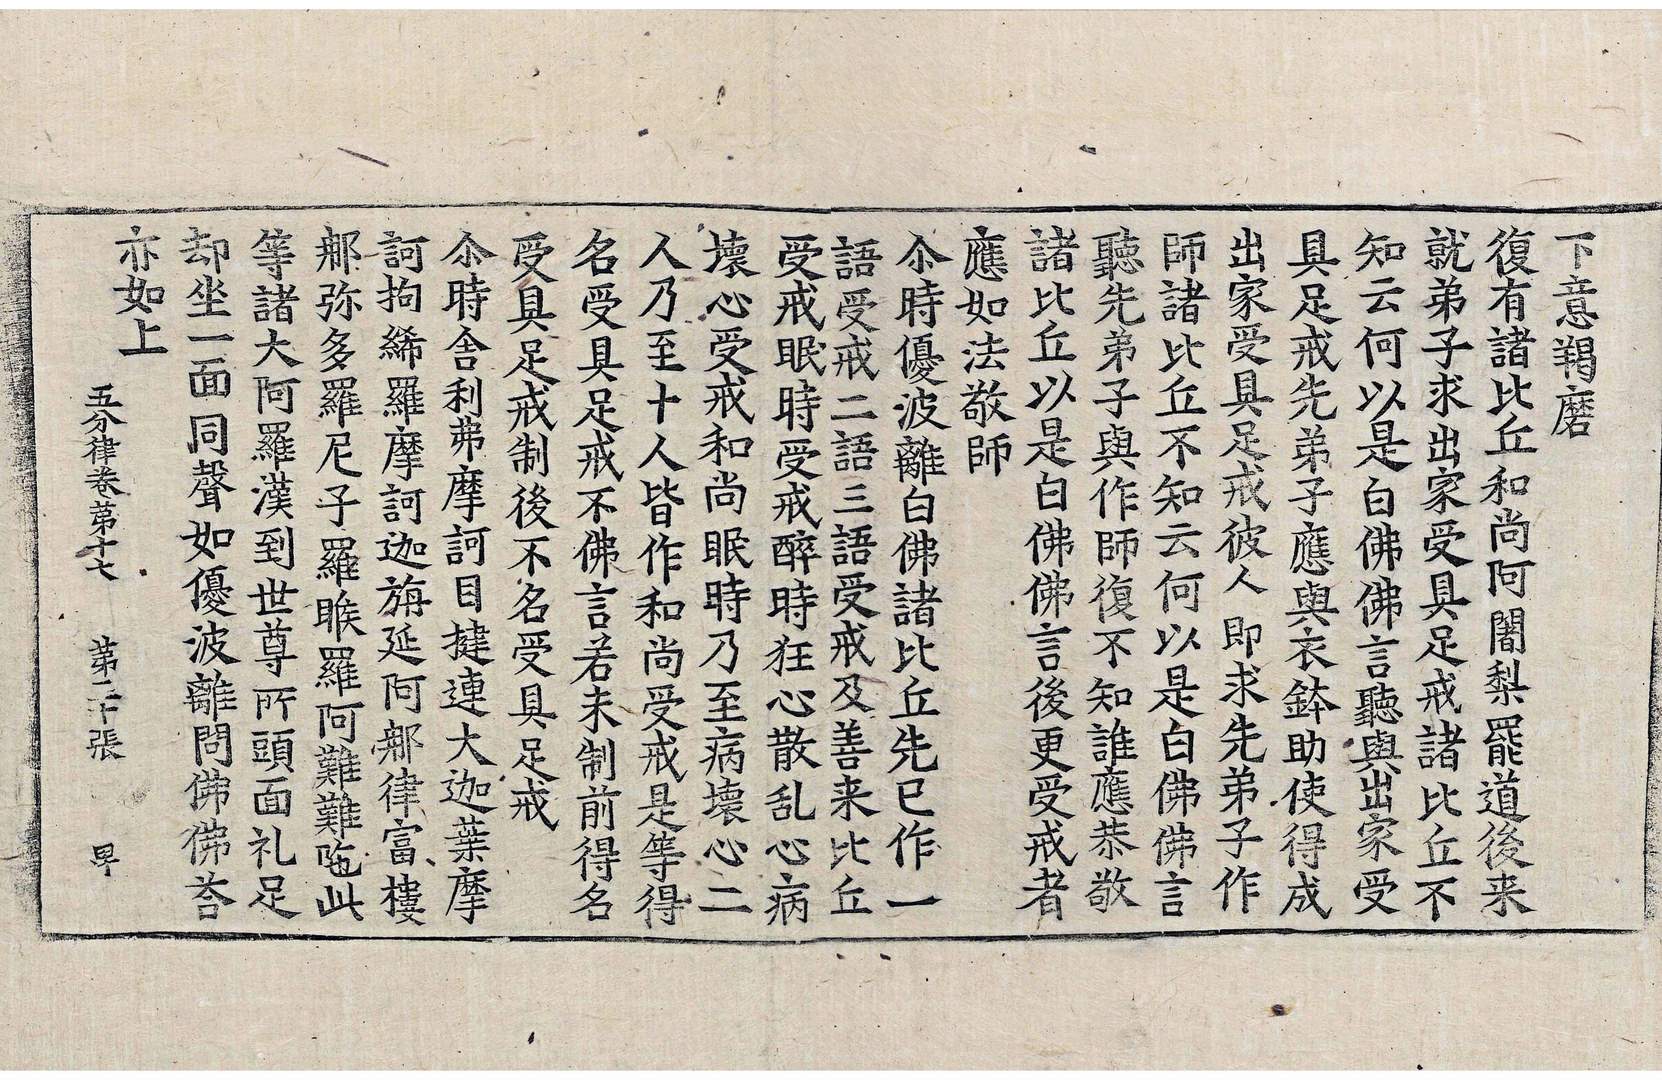 下意羯磨
復有諸比丘和尚阿闍梨罷道後来
就弟子求出家受具足戒諸比丘不
知云何以是白佛佛言聽與出家受
具足戒先弟子應與衣鉢助使得成
出家受具足戒彼人即求先弟子作
師諸比丘不知云何以是白佛佛言
聽先弟子與作師復不知誰應恭敬
諸比丘以是白佛佛言後更受戒者
應如法敬師
尒時優波離白佛諸比丘先已作一
語受戒二語三語受戒及善来比丘
受戒眠時受戒醉時狂心散乱心病
壞心受戒和尚眠時乃至病壞心二
人乃至十人皆作和尚受戒是等得
名受具足戒不佛言若未制前得名
受具足戒制後不名受具足戒
尒時舍利弗摩訶目揵連大迦葉摩
訶拘絺羅摩訶迦旃延阿那律富樓
那弥多羅尼子羅睺羅阿難難陁此
等諸大阿羅漢到世尊所頭面礼足
却坐一面同聲如優波離問佛佛荅
亦如上
五分律卷第十七 第二十張 卑